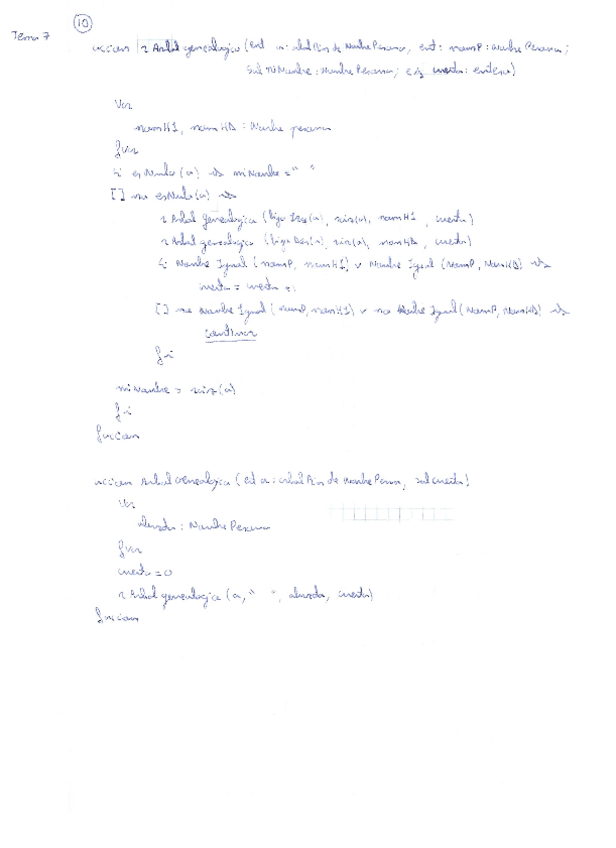 Tema 7
10
accion rArbolgenealogico (ent a: arbolBin de NombrePersona, ent: nomP: NombrePersona;
sal miNombre: NombrePersona; e/s cuenta: entero)
Var
nomHI, nomHD: Nombre persona
fvar
Si esNulo(a) → miNombre = " "
[] no esNulo(a) →
rArbolgenealogico (hijoIzq(a), raiz(a), nomHI, cuenta)
rArbolgenealogico (hijoDer(a), raiz(a), nomHD, cuenta)
Si Nombre Igual (nomP, nomHI) v Nombre Igual (NomP, NomHD) →
cuenta = cuenta +1
[] no Nombre Igual (nomP, nomHI) v no Nombre Igual (NomP, NomHD) →
continuar
fsi
miNombre = raiz(a)
fsi
faccion
accion ArbolGenealogico (ent a: arbolBin de NombrePersona, sal cuenta)
Var
abuelo: NombrePersona
fvar
cuenta = 0
rArbolgenealogico (a, " ", , cuenta)
faccion